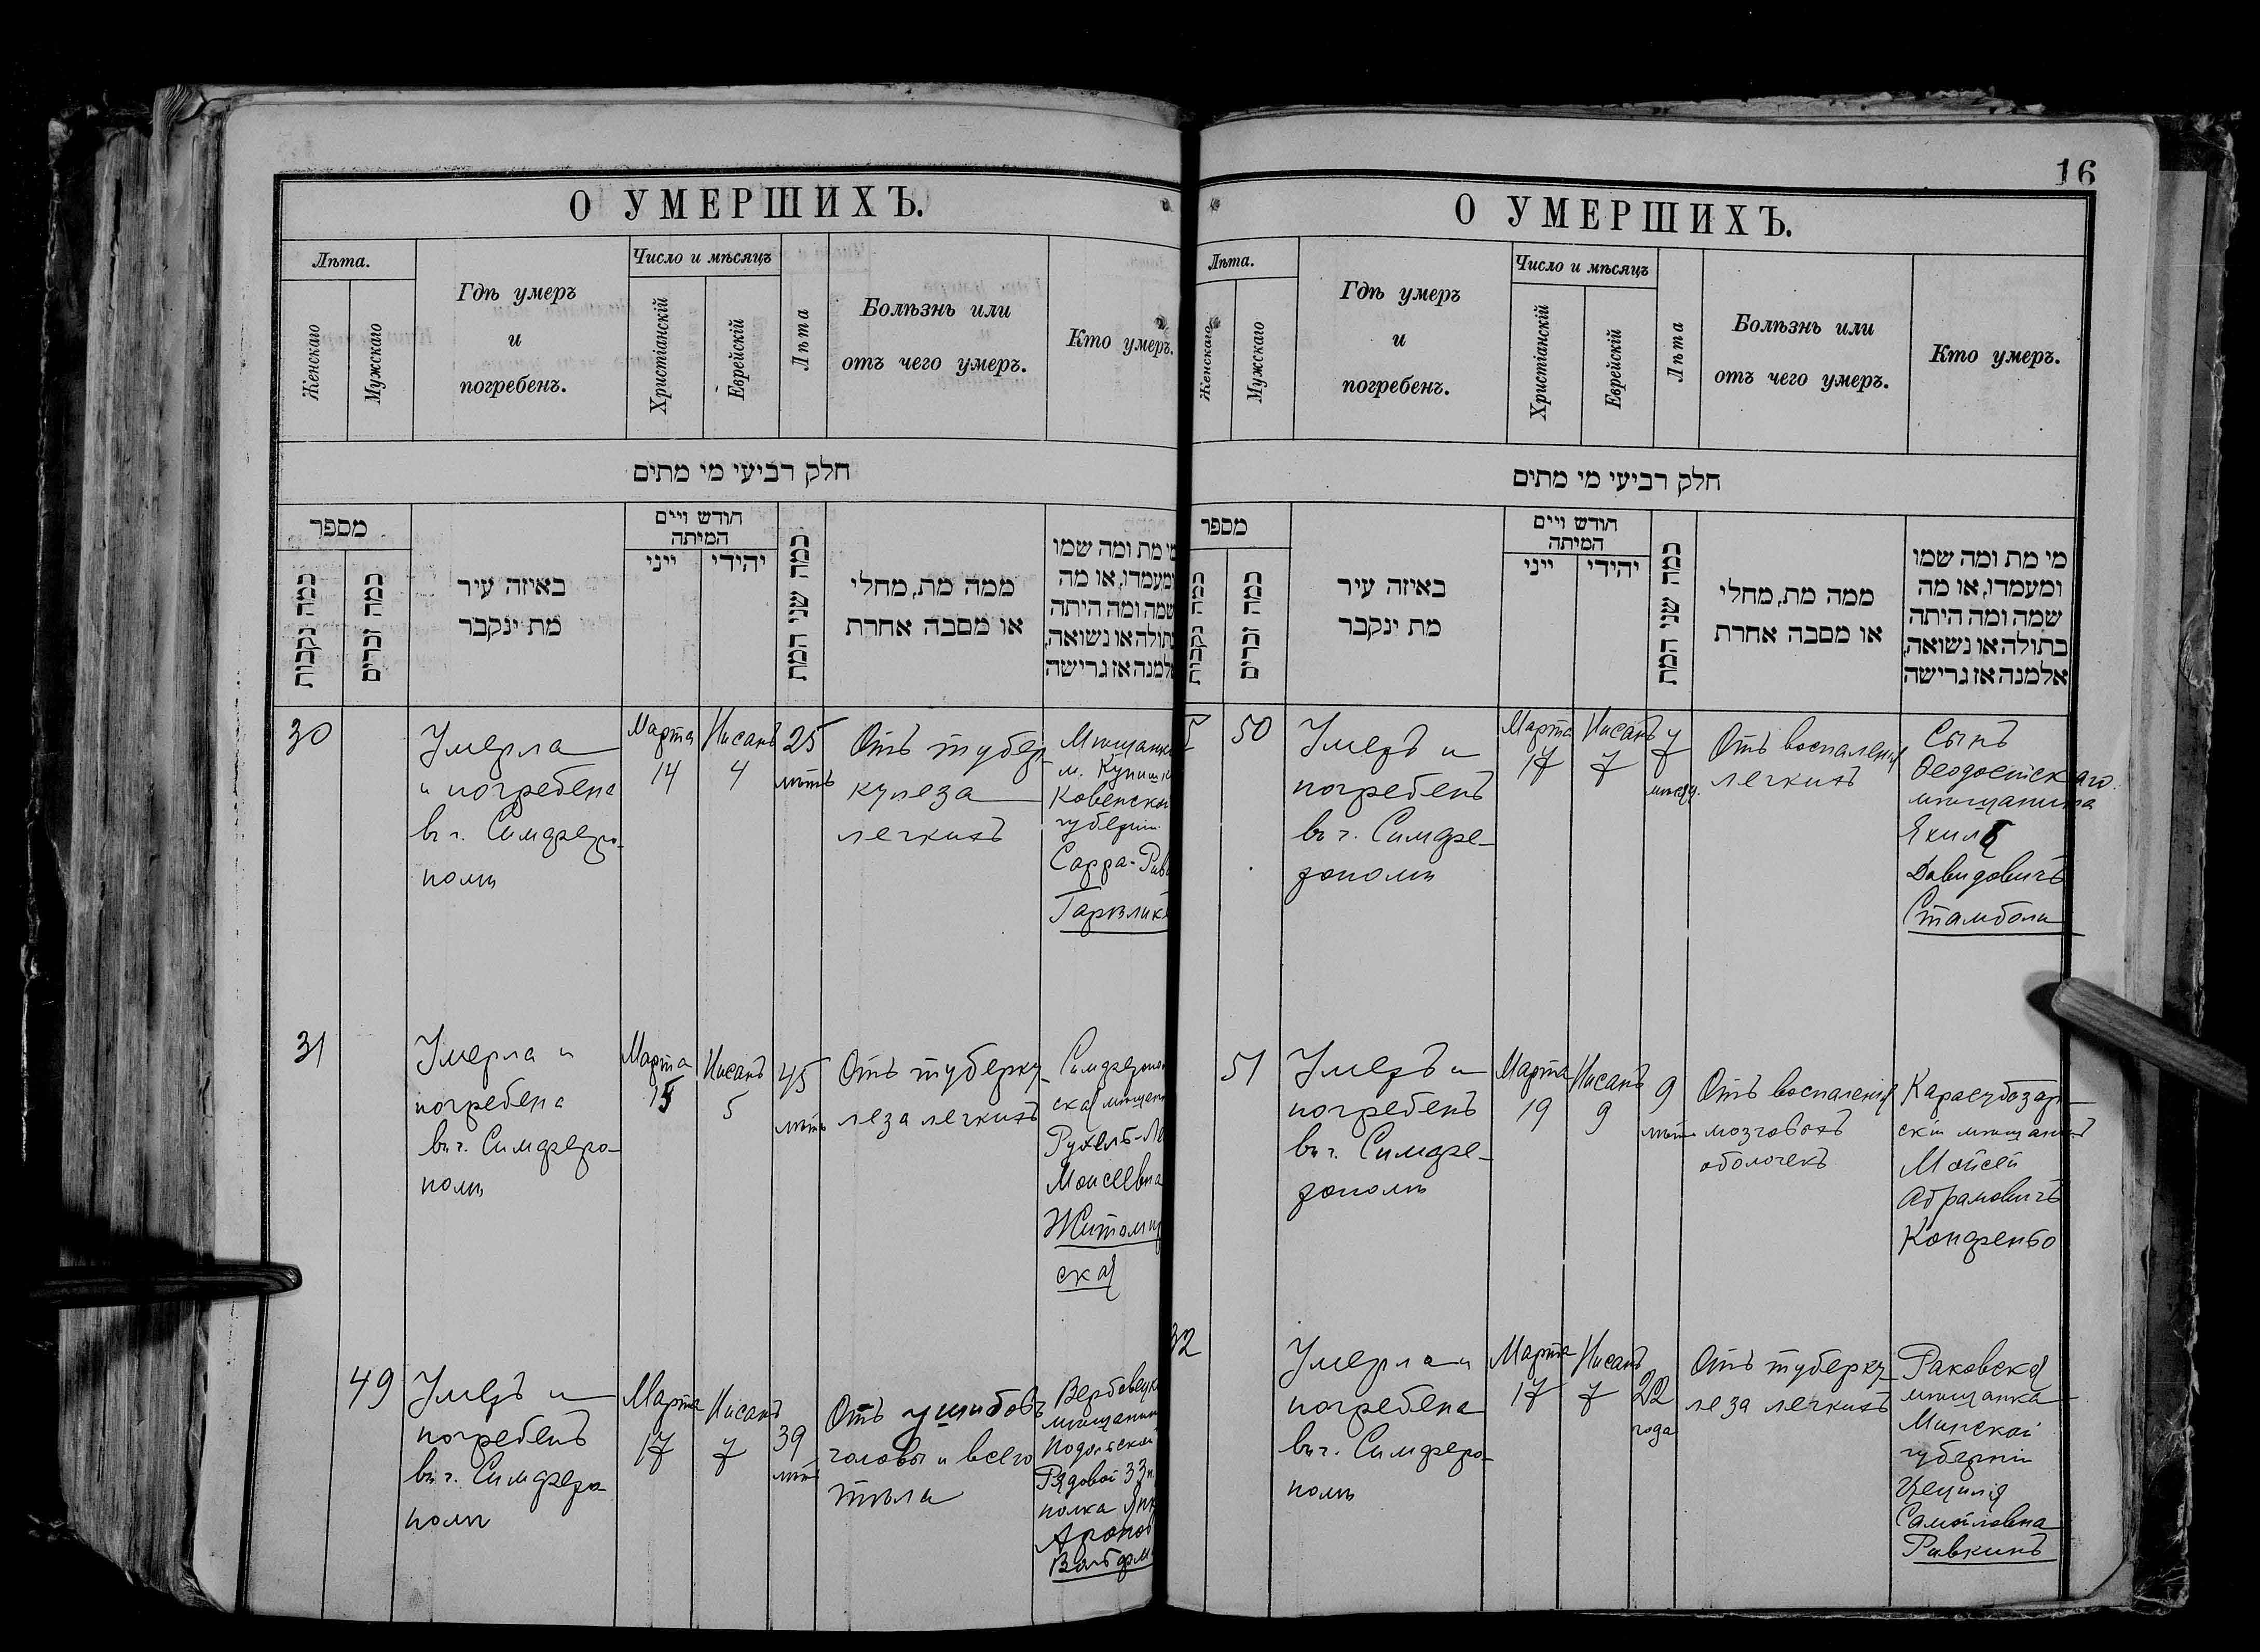 16
О УМЕРШИХЪ.
Лѣта.
Женскаго
Мужскаго
Гдѣ умеръ
и
погребенъ.
Число и мѣсяцъ
Христіанскій
Еврейскій
Лѣта
Болѣзнь или
отъ чего умеръ.
Кто умеръ.
חלק רביעי מי מתים
מספר
כמה נקבות
כמה זכרים
באיזה עיר
מת ינקבר
חודש ויים
המיתה
ייני
יהודי
כמה שני המת
ממה מת, מחלי
או מסבה אחרת
מי מת ומה שמו
ומעמדו, או מה
שמה ומה היתה
בתולה או נשואה,
אלמנה אז גרישה
30
Умерла
и погребена
въ г. Симферо-
полѣ
Марта
14
Нисанъ
4
25
лѣтъ
Отъ тубер-
кулеза
легкихъ
Мѣщанка
м.
Ковенской
губерніи
Сарра-
31
Умерла и
погребена
въ г. Симферо-
полѣ
Марта
15
Нисанъ
5
45
лѣтъ
Отъ туберку-
леза легкихъ
Симферополь-
ская
Моисеевна
Житомир
ская
49
Умеръ и
погребенъ
въ г. Симферо-
полѣ
Марта
17
Нисанъ
7
39
лѣтъ
Отъ ушибовъ
головы и всего
тѣла
мѣщанинъ
Подольской
Рядовой 33
полка
О УМЕРШИХЪ.
Лѣта.
Женскаго
Мужскаго
Гдѣ умеръ
и
погребенъ.
Число и мѣсяцъ
Христіанскій
Еврейскій
Лѣта
Болѣзнь или
отъ чего умеръ.
Кто умеръ.
חלק רביעי מי מתים
מספר
כמה נקבות
כמה זכרים
באיזה עיר
מת ינקבר
חודש ויים
המיתה
ייני
יהודי
כמה שני המת
ממה מת, מחלי
או מסבה אחרת
מי מת ומה שמו
ומעמדו, או מה
שמה ומה היתה
בתולה או נשואה,
אלמנה אז גרישה
50
Умеръ и
погребенъ
въ г. Симфе-
рополѣ
Марта
17
Нисанъ
7
7
мѣсяц.
Отъ воспаленія
легкихъ
Сынъ
Ѳеодосійскаго
мѣщанина
Давидовичъ
Стамболи
51
Умеръ и
погребенъ
въ г. Симфе-
рополѣ
Марта
19
Нисанъ
9
9
лѣтъ
Отъ воспаленія
мозговыхъ
оболочекъ
Карасубазар-
скій мѣщанинъ
Мойсей
Абрамовичъ
Конфенбо
32
Умерла и
погребена
въ г. Симферо-
полѣ
Марта
17
Нисанъ
7
22
года
Отъ туберку-
леза легкихъ
Раковская
мѣщанка
Минской
губерніи
Цецилія
Самойловна
Ривкинъ